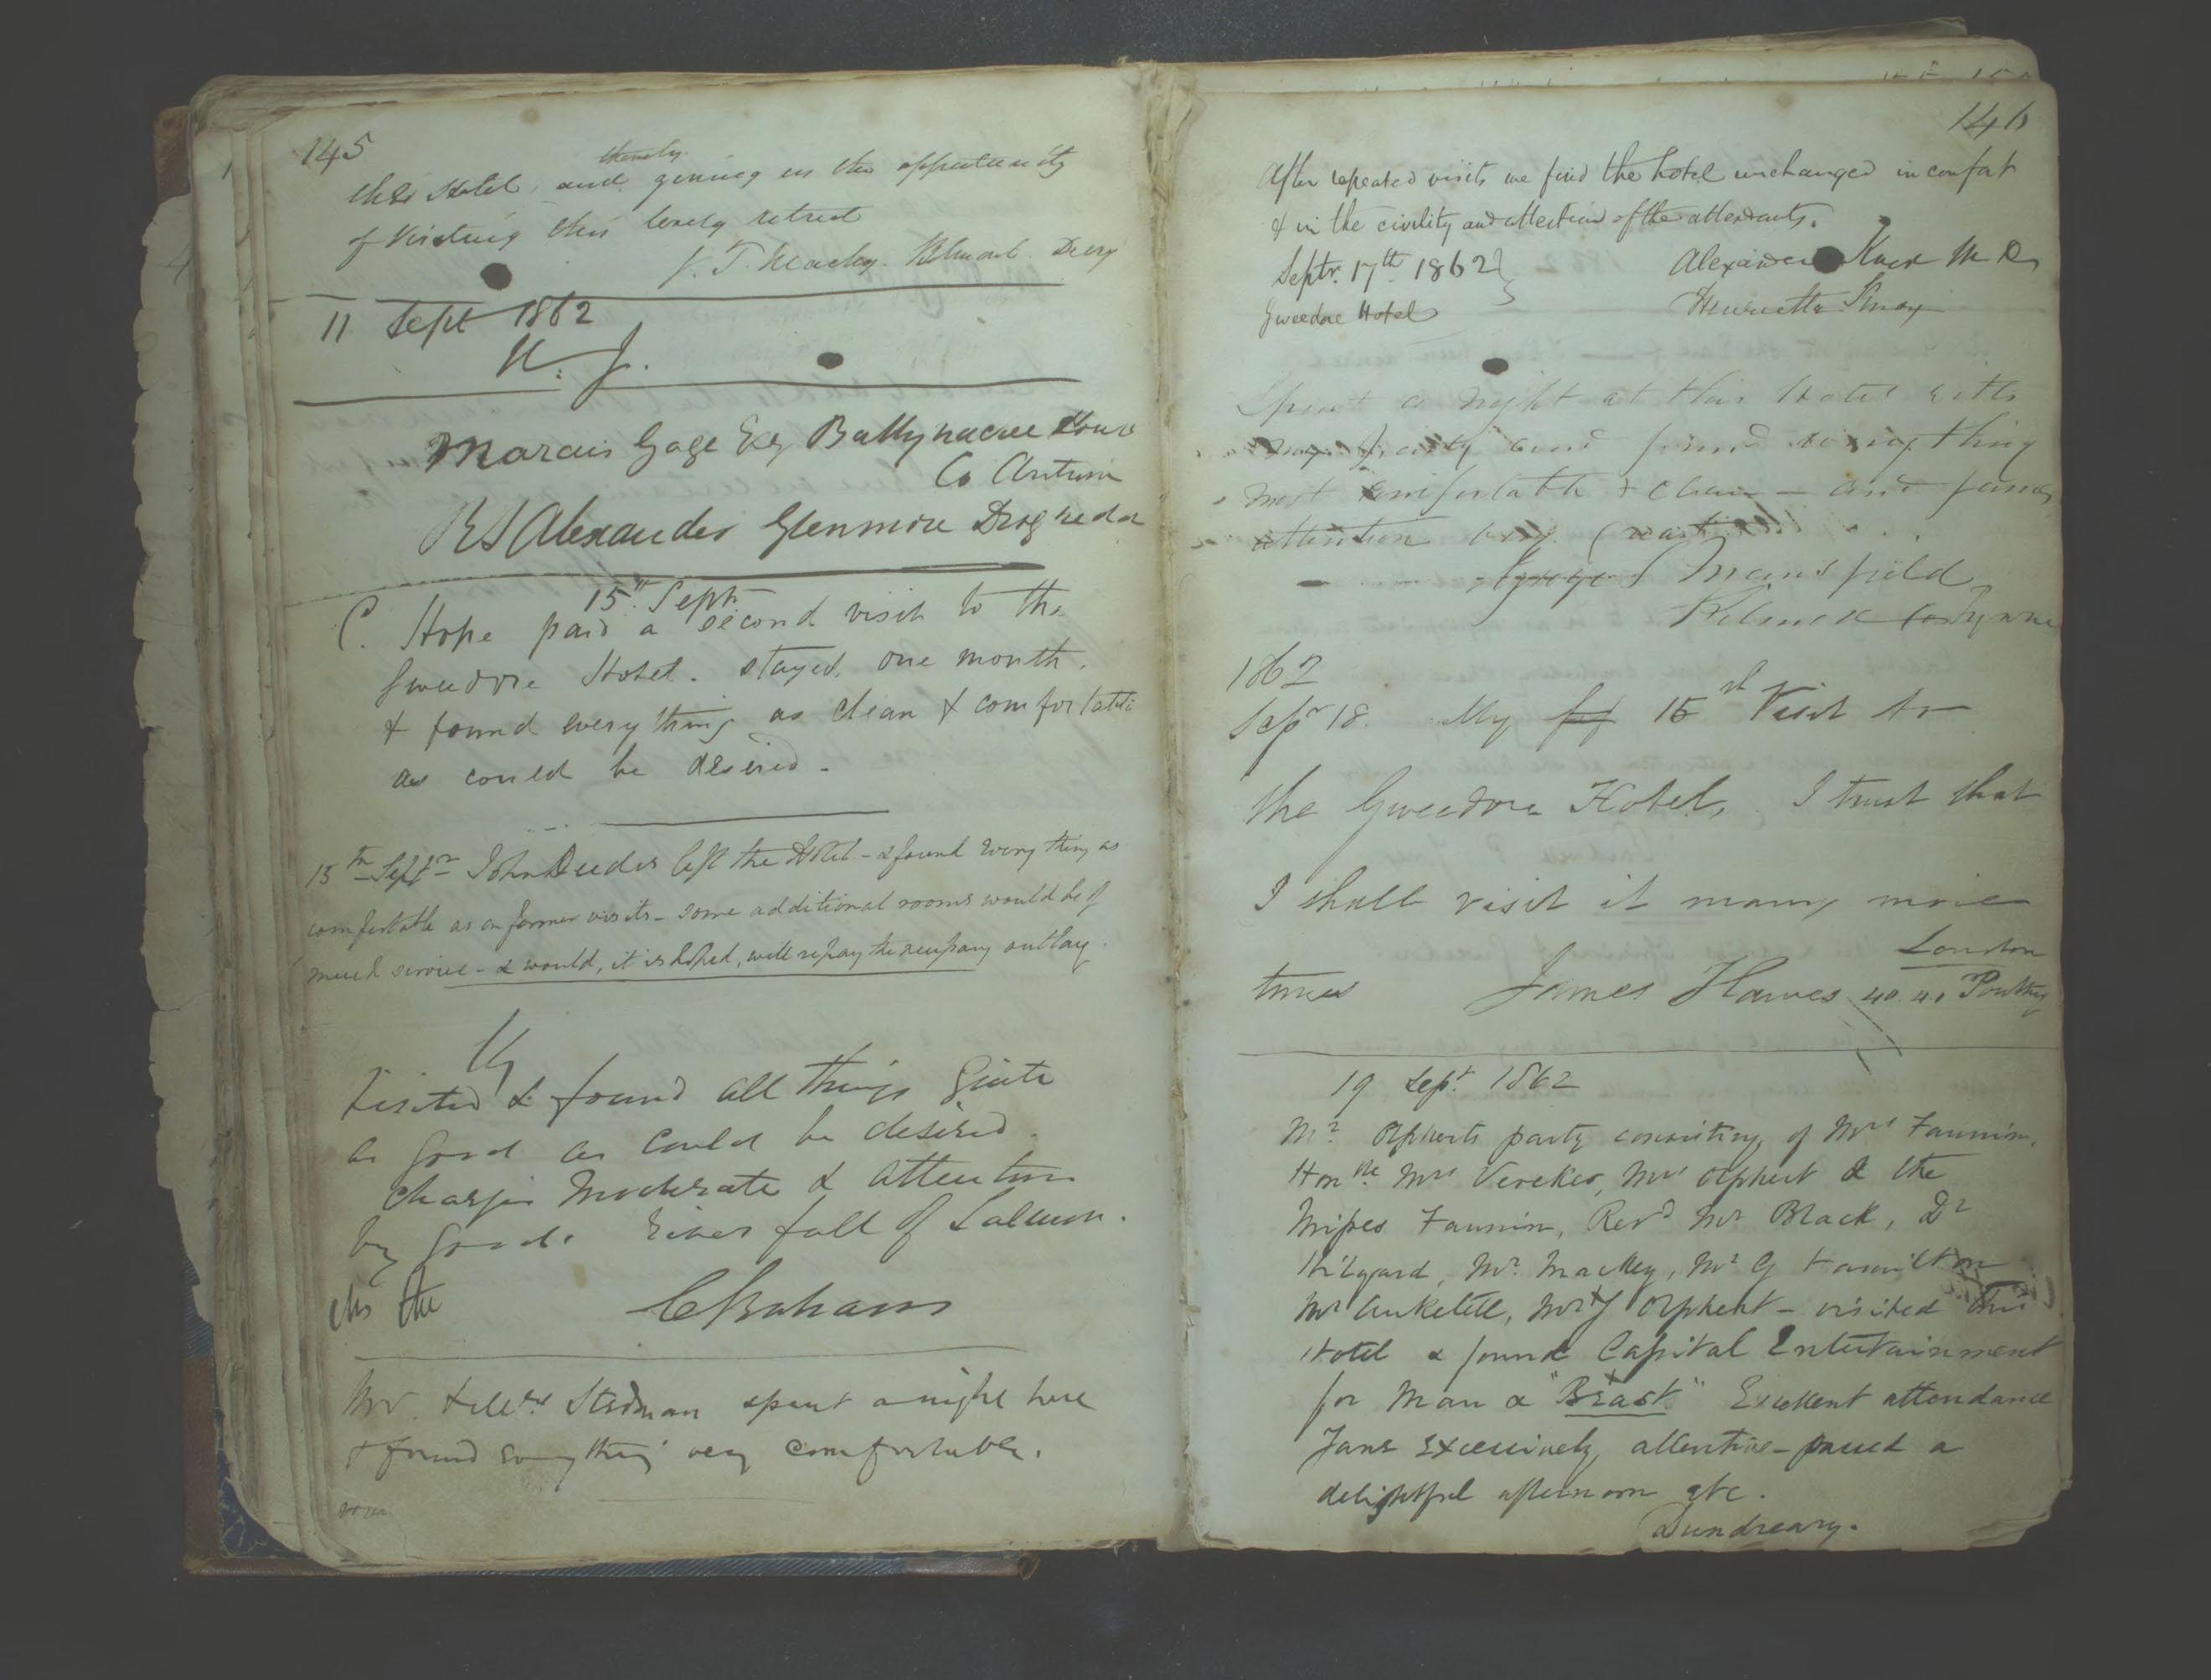 145
thereby
this Hotel, and giving us the opportunity
of Visiting this lovely retreat
J. T. Macky. Belmont. Derry
11 Sept 1862
Marcus Gage Esq Ballynacree House
Co Antrim
R S Alexander Glenmore Drogheda
15th Septr
C. Hope paid a second visit to the
Gweedore Hotel. stayed one month.
& found every thing as clean & comfortable
as could be desired.
15th Septr John Deedes left the Hotel - & found every thing as
comfortable as on former visits - some additional rooms would be of
much service - & would, it is hoped, well repay the necessary outlay.
Visited & found all things Quite
as good as could be desired.
Charges Moderate & attention
by good. River full of Salmon.
the
Mr. & Mrs Stedman spent a night here
& found everything very comfortable.
146
After repeated visits we find the hotel unchanged in comfort
& in the civility and attention of the attendants.
Septr. 17th 1862
Alexander Knox M D
Gweedore Hotel
Henrietta Knox
Spent a night at this Hotel with
my family and found everything
most comfortable & clean - and
attention
George Mansfield
1862
Sepr 18. My 15 Visit to
the Gweedore Hotel, I trust that
I shall visit it many more
London
times James Hawes 40. 41 Poultry
19 Sept. 1862
Mr. Olpherts party consisting of Mrs Fannin,
Honble Mrs Vereker, Mrs Olphert & the
Misses Fannin, Revd Mr Black, Dr
Hilyard, Mr. Mackey, Mr G Hamilton
Mr Anketell, Mr J Olphert - visited this
Hotel & found Capital Entertainment
for Man & "Beast" Excellent attendance
Jane excessively attentive - passed a
delightful afternoon etc.
Dundreary.